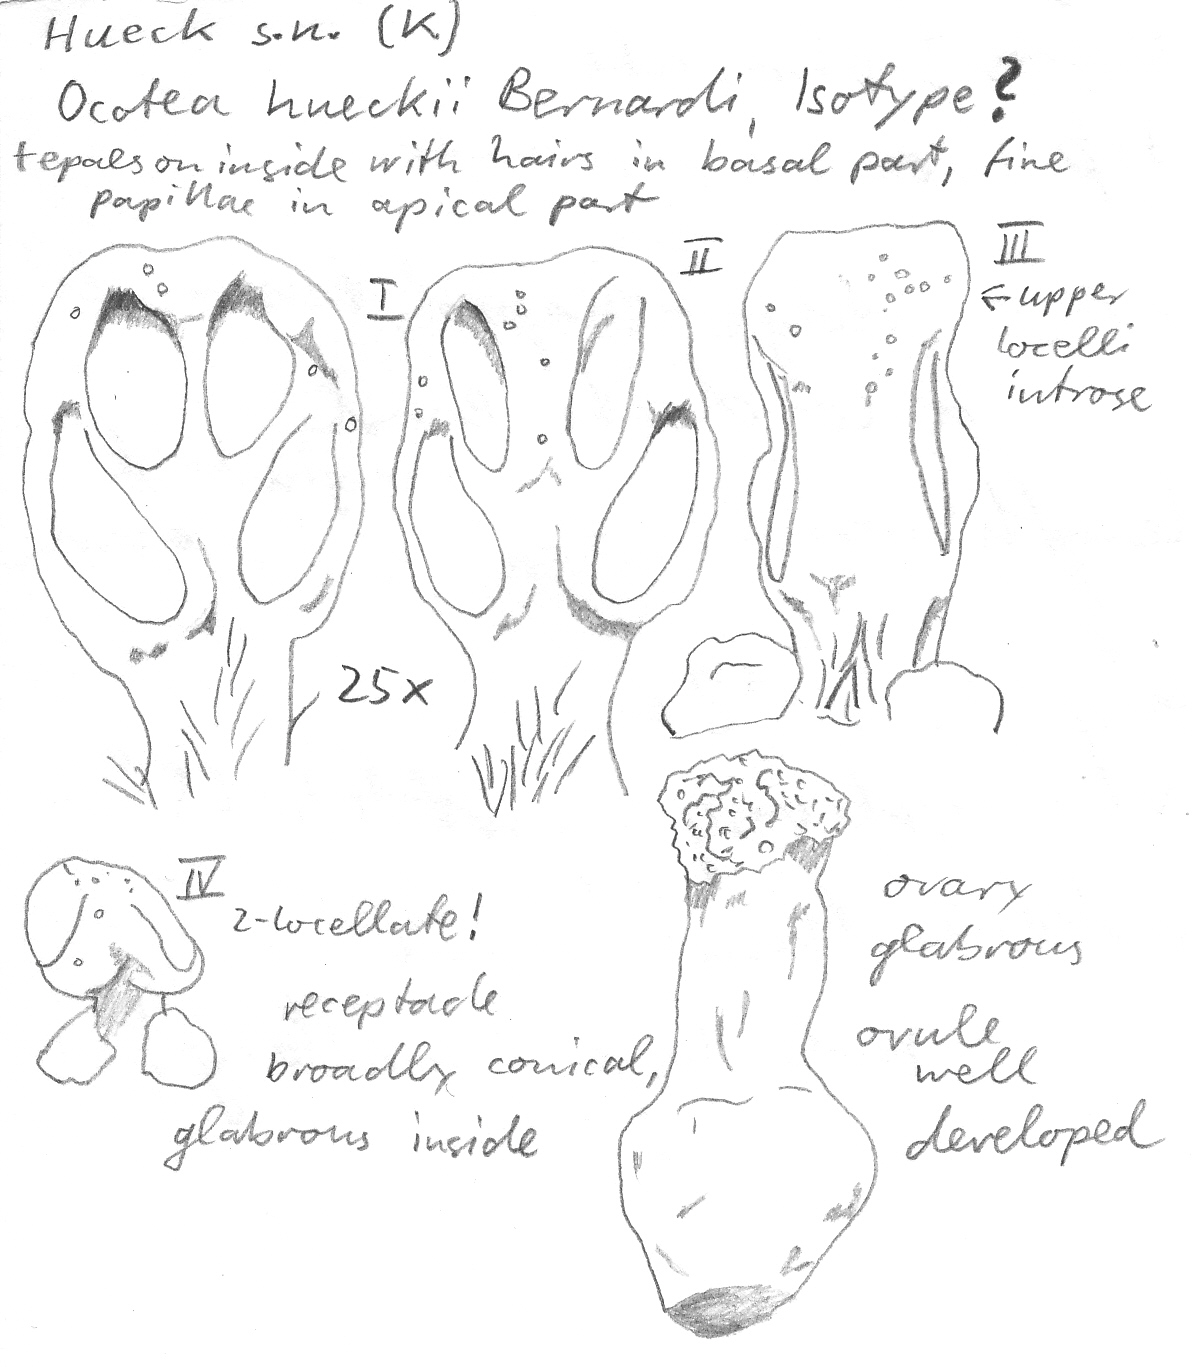 Hueck s.n. (K)
Ocotea hueckii Bernardi, Isotype?
tepals on inside with hairs in basal part, fine
papillae in apical part
I
II
III
← upper
locelli
introse
25x
IV
2-locellate!
receptacle
broadly conical,
glabrous inside
ovary
glabrous
ovule
well
developed